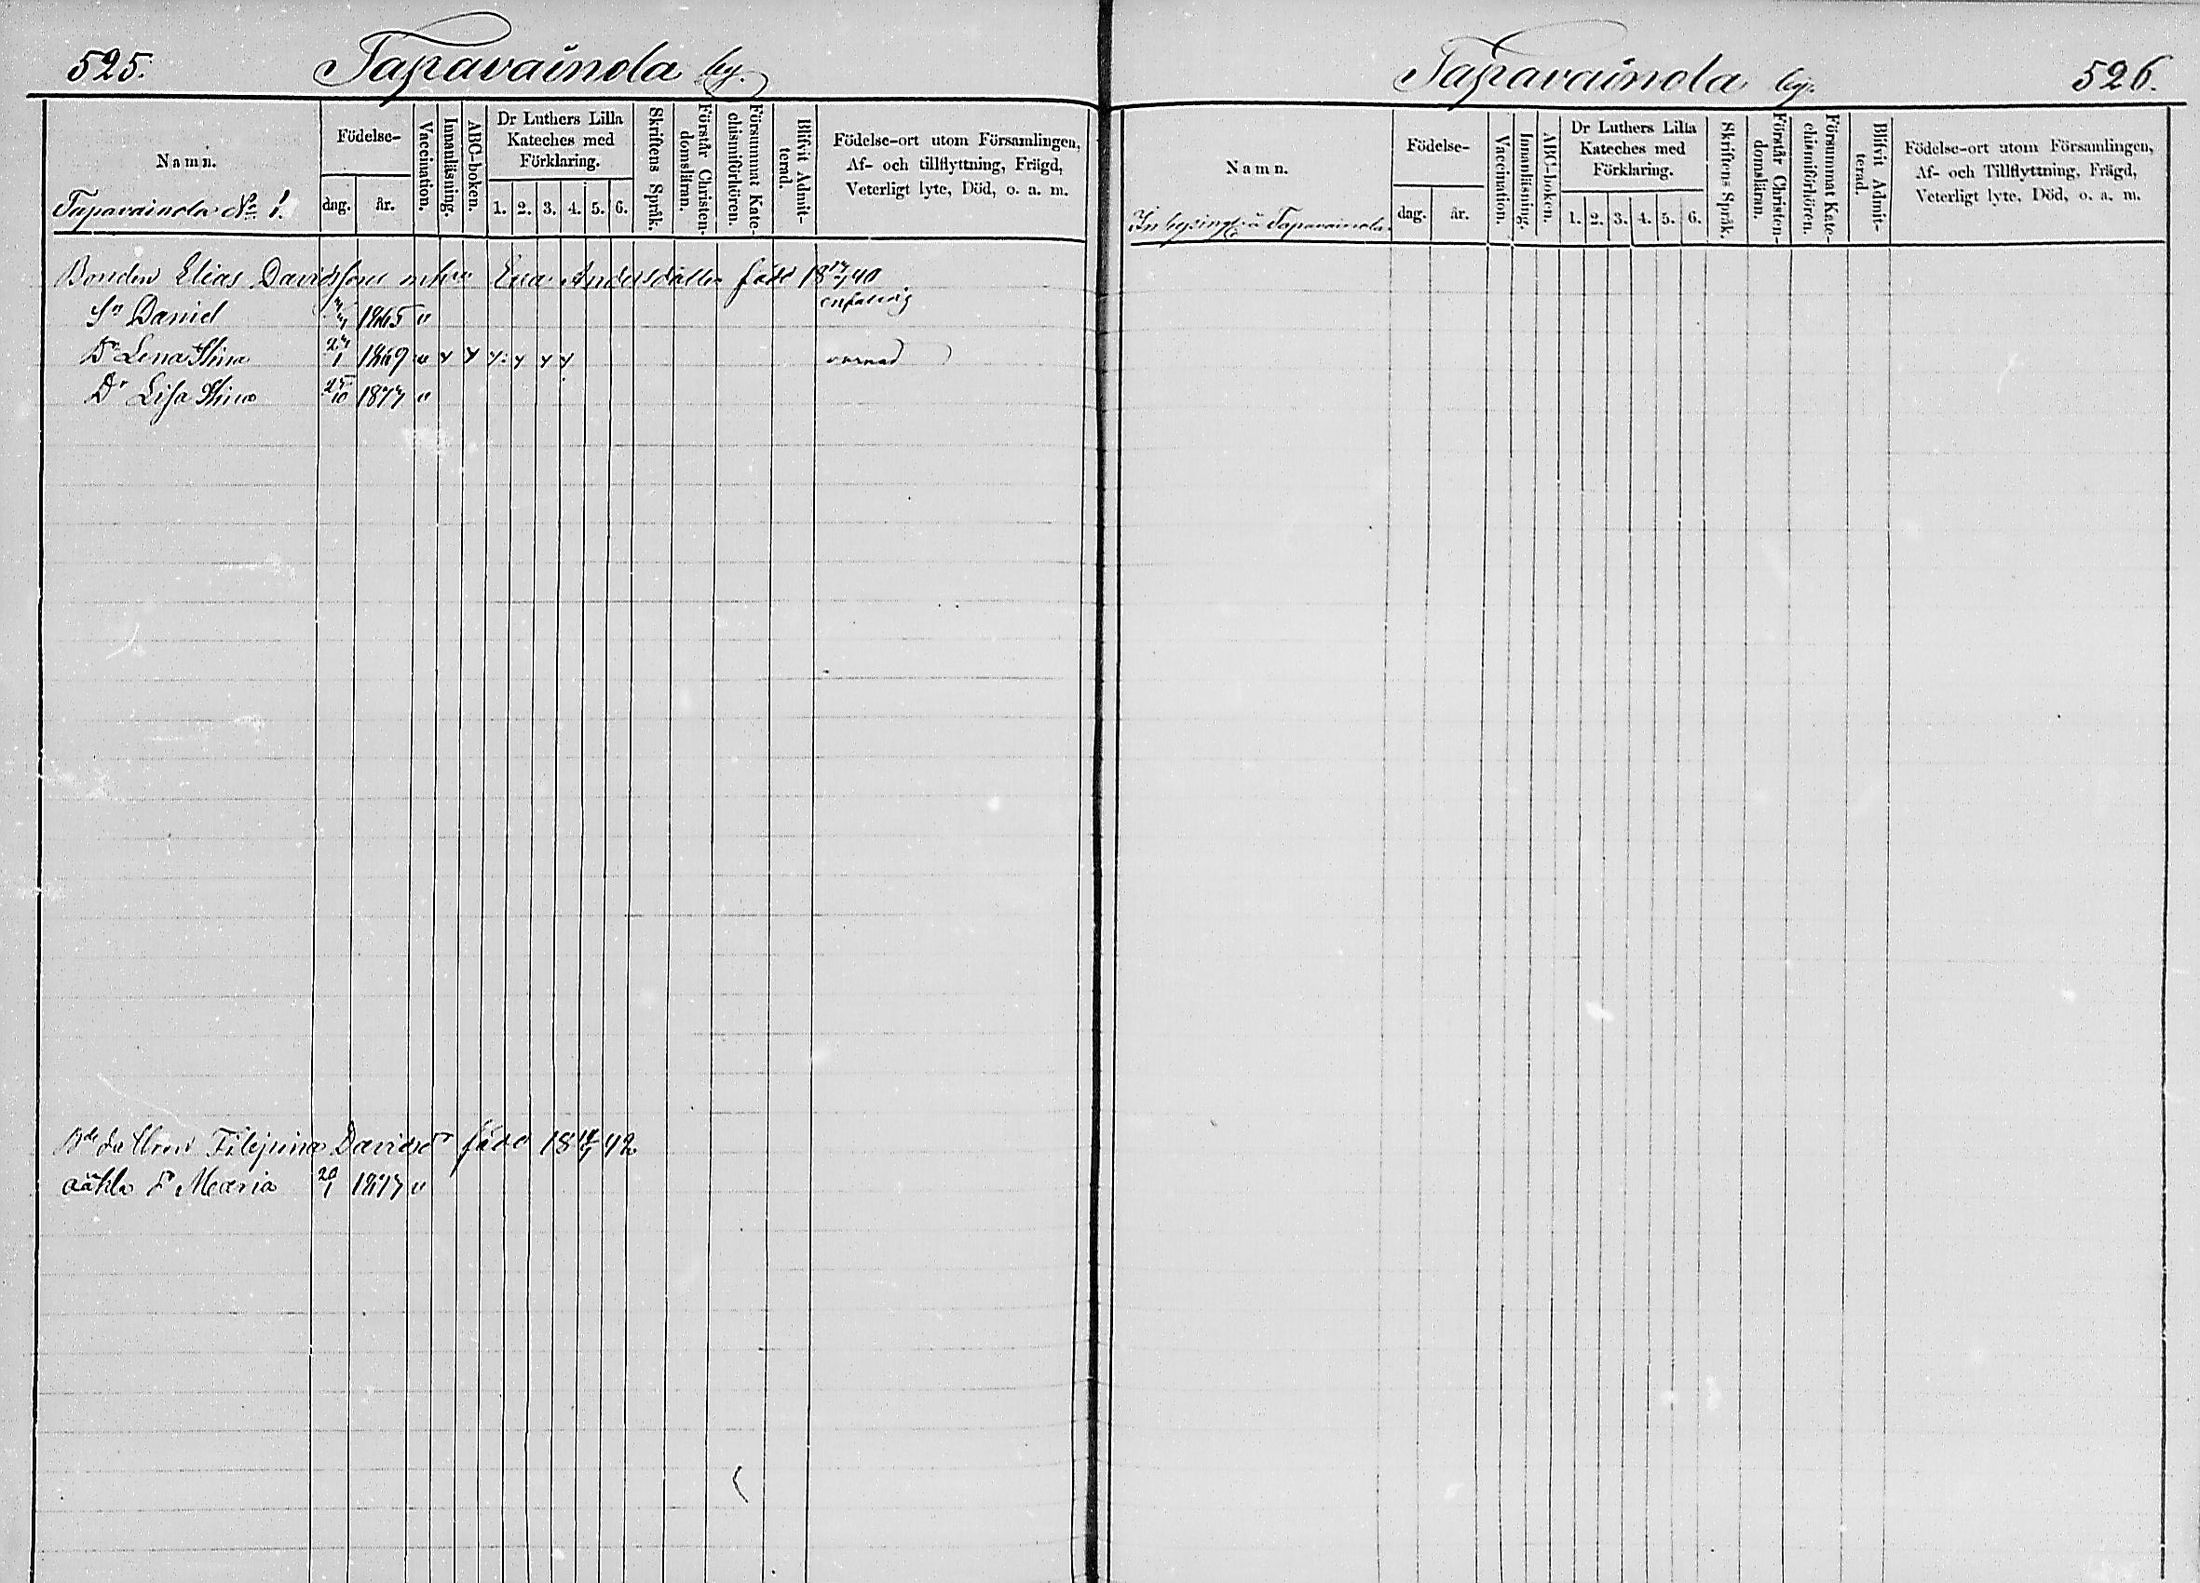 525.
Tapavainola by.
Namn.
Födelse-
dag. år.
Vaccination.
Innanläsning.
ABC-boken.
Dr Luthers Lilla Kateches med Förklaring.
1. 2. 3. 4. 5. 6.
Skriftens Språk.
Förstår Christendomsläran.
Försummat Katechismiförhören.
Blifvit Admitterad.
Födelse-ort utom Församlingen,
Af- och tillflyttning, Frägd,
Veterligt lyte, Död, o. a. m.
Tapavainola No 1.
Bonden Elias Davidssons enka Eva Andersdotter född 18 40
Sn Daniel 1865 "
Dr Lena Stina 1869 "
Dr Lisa Stina 25/10 1877 "
Filipina Davidsdr född 18 42
oäkta Dr Maria 20/1 1877 "
Tapavainola by.
526.
Namn.
Födelse-
dag. år.
Vaccination.
Innanläsning.
ABC-boken.
Dr Luthers Lilla Kateches med Förklaring.
1. 2. 3. 4. 5. 6.
Skriftens Språk.
Förstår Christendomsläran.
Försummat Katechismiförhören.
Blifvit Admitterad.
Födelse-ort utom Församlingen,
Af- och Tillflyttning, Frägd,
Veterligt lyte, Död, o. a. m.
å Tapavainola